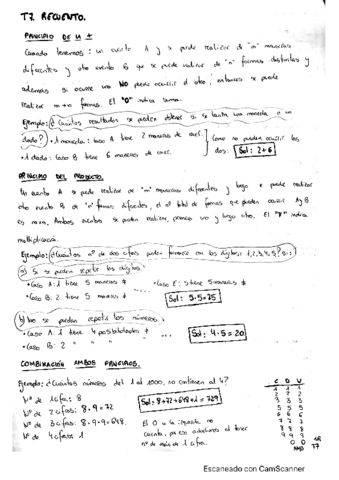 T7. RECUENTO.
PRINCIPIO DE LA +
Cuando tenemos: un evento A y se puede realizar de "m" maneras
diferentes y otro evento B que se puede realizar de "n" formas distintas y
además si uno NO puede ocurrir el otro, entonces se puede
realizar m+n formas. El "O" indica suma.
Ejemplo: ¿Cuántos resultados se pueden obtener si se lanza una moneda o un
dado?
• 1 moneda: caso A tiene 2 maneras de
• 1 dado: caso B tiene 6 maneras de
Como no pueden ocurrir los
dos: Sol: 2+6
PRINCIPIO DEL PRODUCTO.
Un evento A se puede realizar de "m" maneras diferentes y luego se puede realizar
otro evento B de "n" formas diferentes, el nº total de formas que pueden ocurrir A y B
es m·n. Ambos eventos se pueden realizar, primero uno y luego otro. El "Y" indica
multiplicación.
Ejemplo: ¿Cuántos nº de dos cifras puedo formarse con los dígitos: 1,2,3,4,5?
a) Si se pueden repetir los dígitos.
• Caso A: 1 tiene 5 maneras
• Caso B: 2 tiene 5 maneras
Sol: 5·5=25
b) No se pueden repetir los números.
• Caso A: 1 tiene 4 posibilidades
• Caso B: 2 " "
Sol: 4·5=20
COMBINACIÓN AMBOS PRINCIPIOS.
Ejemplo: ¿Cuántos números del 1 al 1000, no contienen al 4?
Nº de 1 cifra: 8
Nº de 2 cifras: 8·9=72
Nº de 3 cifras: 8·9·9=648
Nº de 4 cifras 1
Sol: 8+72+648+1=729
El 0 a la izquierda no
cuenta, por eso añadimos al tener
nº de más de 1 cifra.
C D U
1 1 1
2 2 2
3 3 3
5 5 5
6 6 6
7 7 7
8 8 8
9 9 9
0 0
T7
Escaneado con CamScanner